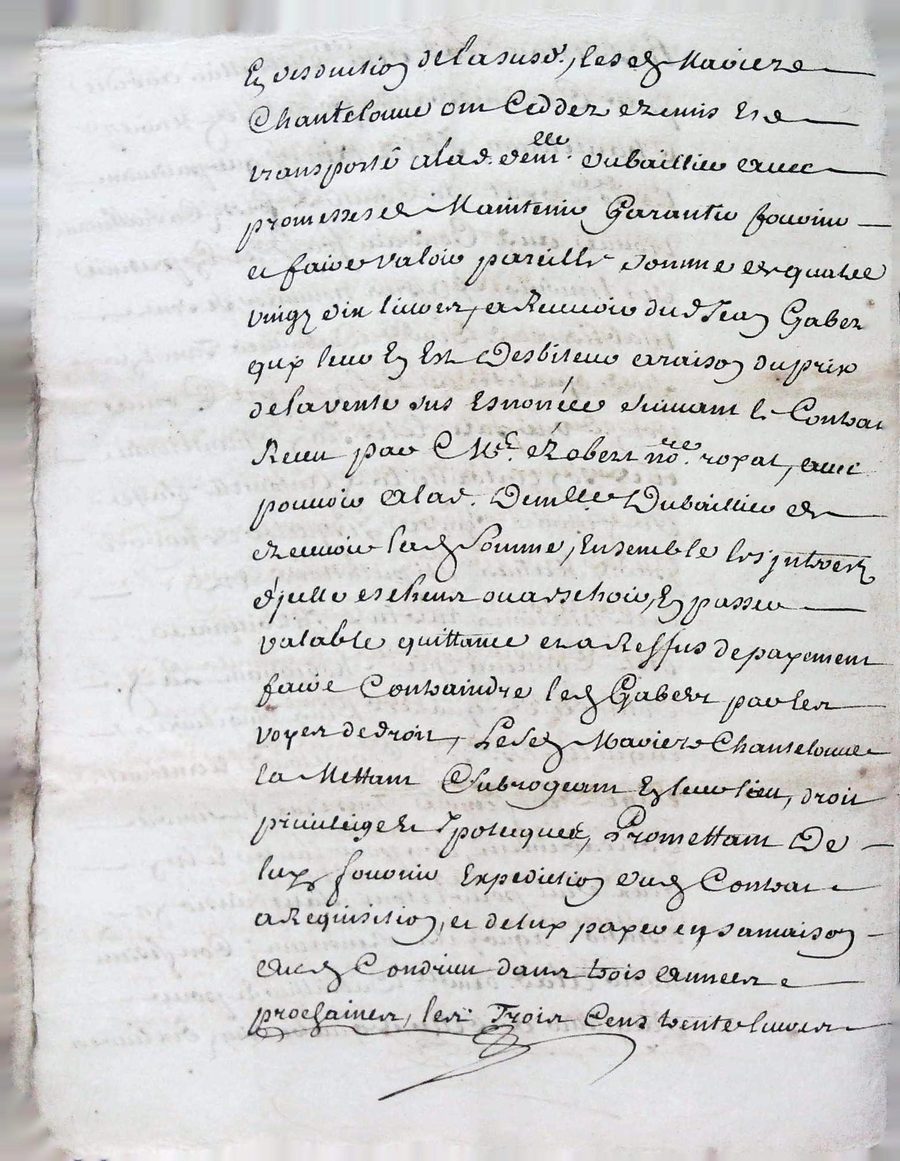 En desduction de la susd., lesd. Mariere
Chantelouve ont Ceddez et remis et
transporté a lad. demlle. dubaillier avec
promesses de Maintenir Garantir fournir
et faire valoir pareille somme de quatre
vingt dix livres, a Recevoir dud Jean Gaber
quy leur En Est Desbiteur a raison du prix
de la vente sus Esnoncée suivant le Contrat
Receu par Me. Robert nore. royal, avec
pouvoir a lad. Demlle. Dubaillier de
recevoir lad somme, Ensemble les jnterets
d'jcelle escheus ou a eschoir, En passer
valable quittance et a Reffus de payement
faire Contraindre led Gaber par les
voyes de droit, Lesd Mariere Chantelouve
la Mettant Subrogeant En leur lieu, droit
privilege et Ypoteques, Promettant De
luy fournir Expedition dud Contrat
a Requisition, et de luy payer en sa maison
aud Condrieu dans trois années
prochaines, les Trois Cens trente livres